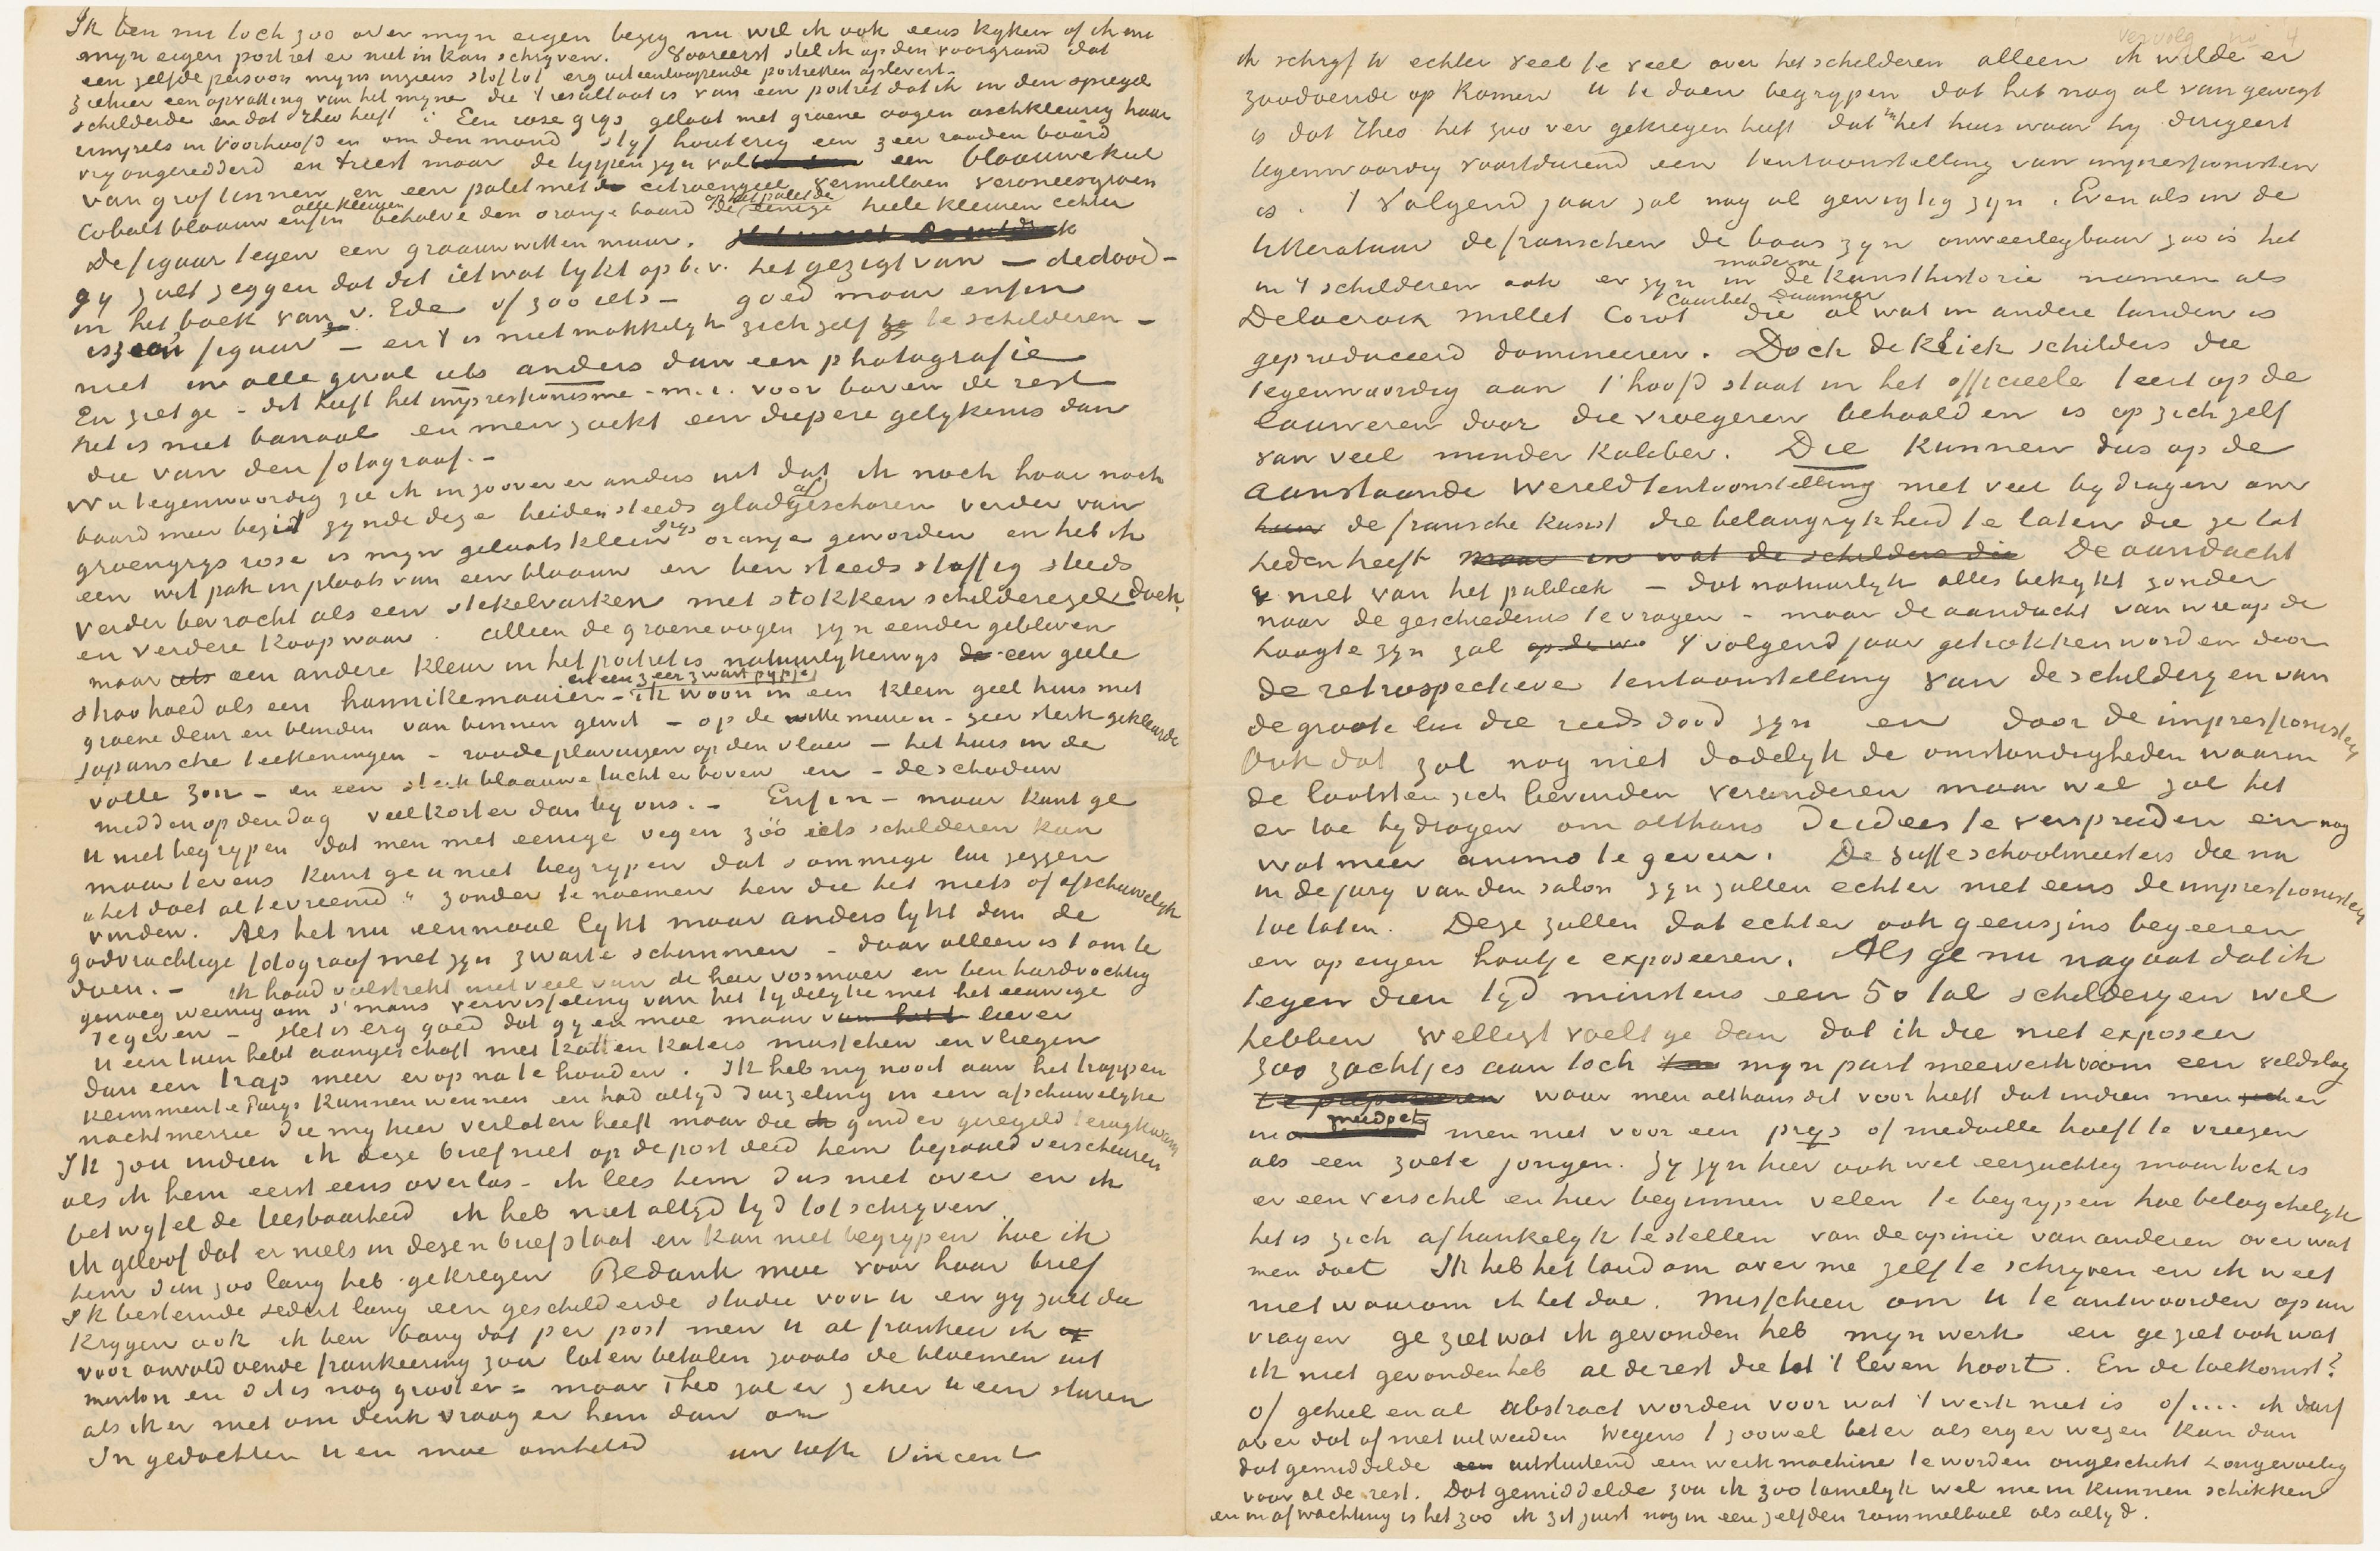 Ik ben nu toch zoo over myn eigen bezig nu wil ik ook eens kyken of ik nu
myn eigen portret er niet in kan schryven. Vooreerst stel ik op den voorgrond dat
een zelfde persoon myns inziens stof tot erg uiteenloopende portretten oplevert –
ziehier een opvatting van het myne die 't resultaat is van een portret dat ik in den spiegel
schilderde en dat Theo heeft : Een rose grys gelaat met groene oogen aschkleurig haar
rimpels in voorhoofd en om den mond styf houterig een zeer rooden baard
vry ongeredderd en triest maar de lippen zyn vol een blaauwe kiel
van grof linnen en een palet met citroengeel vermilloen veroneesgroen
Cobaltblaauw enfin alle kleuren behalve den oranje baard op het palet de de eenige heele kleuren echter
De figuur tegen een graauw witten muur.
gy zult zeggen dat dit ietwat lykt op b.v. het gezigt van – de dood –
in het boek van v. Eden of zoo iets – goed maar enfin
is zoo'n figuur – en 't is niet makkelyk zichzelf te schilderen –
niet in alle geval iets anders dan een photografie
En ziet ge – dit heeft het impressionisme – m.i. voor boven de rest
het is niet banaal en men zoekt een diepere gelykenis dan
die van den fotograaf. –
Nu tegenwoordig zie ik in zoover er anders uit dat ik noch haar noch
baard meer bezit zynde deze beiden steeds glad afgeschoren verder van
groengrys rose is myn gelaatskleur grys oranje geworden en heb ik
een wit pak in plaats van een blaauw en ben steeds stoffig steeds
verder bevracht als een stekelvarken met stokken schilderezel doek
en verdere koopwaar. Alleen de groene oogen zyn eender gebleven
maar een andere kleur in het portret is natuurlykerwys een geele
stroohoed als een hannikemaaier – en een zeer zwart pypje ik woon in een klein geel huis met
groene deur en blinden van binnen gewit – op de witte muren – zeer sterk gekleurde
Japansche teekeningen – roode plavuizen op den vloer – het huis in de
volle zon – en een sterk blaauwe lucht er boven en – de schaduw
midden op den dag veel korter dan by ons. – Enfin – maar kunt ge
u niet begrypen dat men met eenige vegen zóó iets schilderen kan
maar tevens kunt ge u niet begrypen dat sommige lui zeggen
„het doet al te vreemd" zonder te noemen hen die het niets of afschuwelyk
vinden. Als het nu eenmaal lykt maar anders lykt dan de
godvruchtige fotograaf met zyn zwarte schimmen – daar alleen is 't om te
doen. – Ik houd volstrekt niet veel van de heer Vosmaer en ben hardvochtig
genoeg weinig om 's mans verwisseling van het tydelyke met het eeuwige
te geven – Het is erg goed dat gy en moe maar liever
u een tuin hebt aangeschaft met katten katers musschen en vliegen
dan een trap meer er op na te houden. Ik heb my nooit aan het trappen
klimmen te Parys kunnen wennen en had altyd duizeling in een afschuwelyke
nachtmerrie die my hier verlaten heeft maar die ginder geregeld terugkwam
Ik zou indien ik deze brief niet op de post deed hem bepaald verscheuren
als ik hem eerst eens overlas – ik lees hem dus niet over en ik
betwyfel de leesbaarheid ik heb niet altyd tyd tot schryven.
ik geloof dat er niets in dezen brief staat en kan niet begrypen hoe ik
hem dan zoo lang heb gekregen Bedank moe voor haar brief
Ik bestemde sedert lang een geschilderde studie voor u en gy zult die
krygen ook ik ben bang dat per post men u al frankeer ik
voor onvoldoende frankeering zou laten betalen zooals de bloemen uit
menton en dit is nog grooter – maar Theo zal er zeker u een sturen
als ik er niet om denk vraag er hem dan om
In gedachten u en moe omhelsd uw liefh Vincent
vervolg no 4
ik schryf U echter veel te veel over het schilderen alleen ik wilde er
zoodoende op komen U te doen begrypen dat het nog al van gewigt
is dat Theo het zoo ver gekregen heeft dat in het huis waar hy dirigeert
tegenwoordig voortdurend een tentoonstelling van impressionisten
is. 't Volgend jaar zal nog al gewigtig zyn. Even als in de
litteratuur de franschen de baas zyn onweerlegbaar zoo is het
in 't schilderen ook er zyn in de moderne kunsthistorie namen als
Delacroix Millet Corot Courbet Daumier die al wat in andere landen is
geproduceerd domineeren. Doch de kliek schilders die
tegenwoordig aan 't hoofd staat in het officieele teert op de
lauweren door die vroegeren behaald en is op zich zelf
van veel minder kaliber. Die kunnen dus op de
aanstaande Wereldtentoonstelling niet veel bydragen om
hun de fransche kunst die belangrykheid te laten die ze tot
heden heeft maar in wat de schilders die De aandacht
niet van het publiek – dat natuurlyk alles bekykt zonder
naar de geschiedenis te vragen – maar de aandacht van wie op de
hoogte zyn zal 't volgend jaar getrokken worden door
de retrospectieve tentoonstelling van de schilderyen van
de groote lui die reeds dood zyn en door de impressionisten
Ook dat zal nog niet dadelyk de omstandigheden waarin
de laatsten zich bevinden veranderen maar wel zal het
er toe bydragen om althans de idees te verspreiden en nog
wat meer animo te geven. De suffe schoolmeesters die nu
in de jury van den salon zyn zullen echter niet eens de impressionisten
toelaten. Deze zullen dat echter ook geenszins begeeren
en op eigen houtje exposeeren. Als ge nu nagaat dat ik
tegen dien tyd minstens een 50 tal schilderyen wil
hebben wellicht voelt ge dan dat ik die niet exposeer
zoo zachtjes aan toch myn part meewerk om een veldslag
te prepareeren waar men althans dit voor heeft dat indien men er
in meedoet men niet voor een prys of medaille hoeft te vreezen
als een zoete jongen. Zy zyn hier ook wel eerzuchtig maar toch is
er een verschil en hier beginnen velen te begrypen hoe belagchelyk
het is zich afhankelyk te stellen van de opinie van anderen over wat
men doet Ik heb het land om over me zelf te schryven en ik weet
niet waarom ik het doe. Misschien om U te antwoorden op uw
vragen ge ziet wat ik gevonden heb myn werk en ge ziet ook wat
ik niet gevonden heb al de rest die tot 't leven hoort. En de toekomst?
of geheel en al abstract worden voor wat 't werk niet is of .... ik durf
over dat of niet uitweiden wegens 't zoowel beter als erger wezen kan dan
dat gemiddelde uitsluitend een werkmachine te worden ongeschikt & ongevoelig
voor al de rest. Dat gemiddelde zou ik zoo tamelyk wel me in kunnen schikken
en in afwachting is het zoo ik zit juist nog in een zelfden rommelboel als altyd.